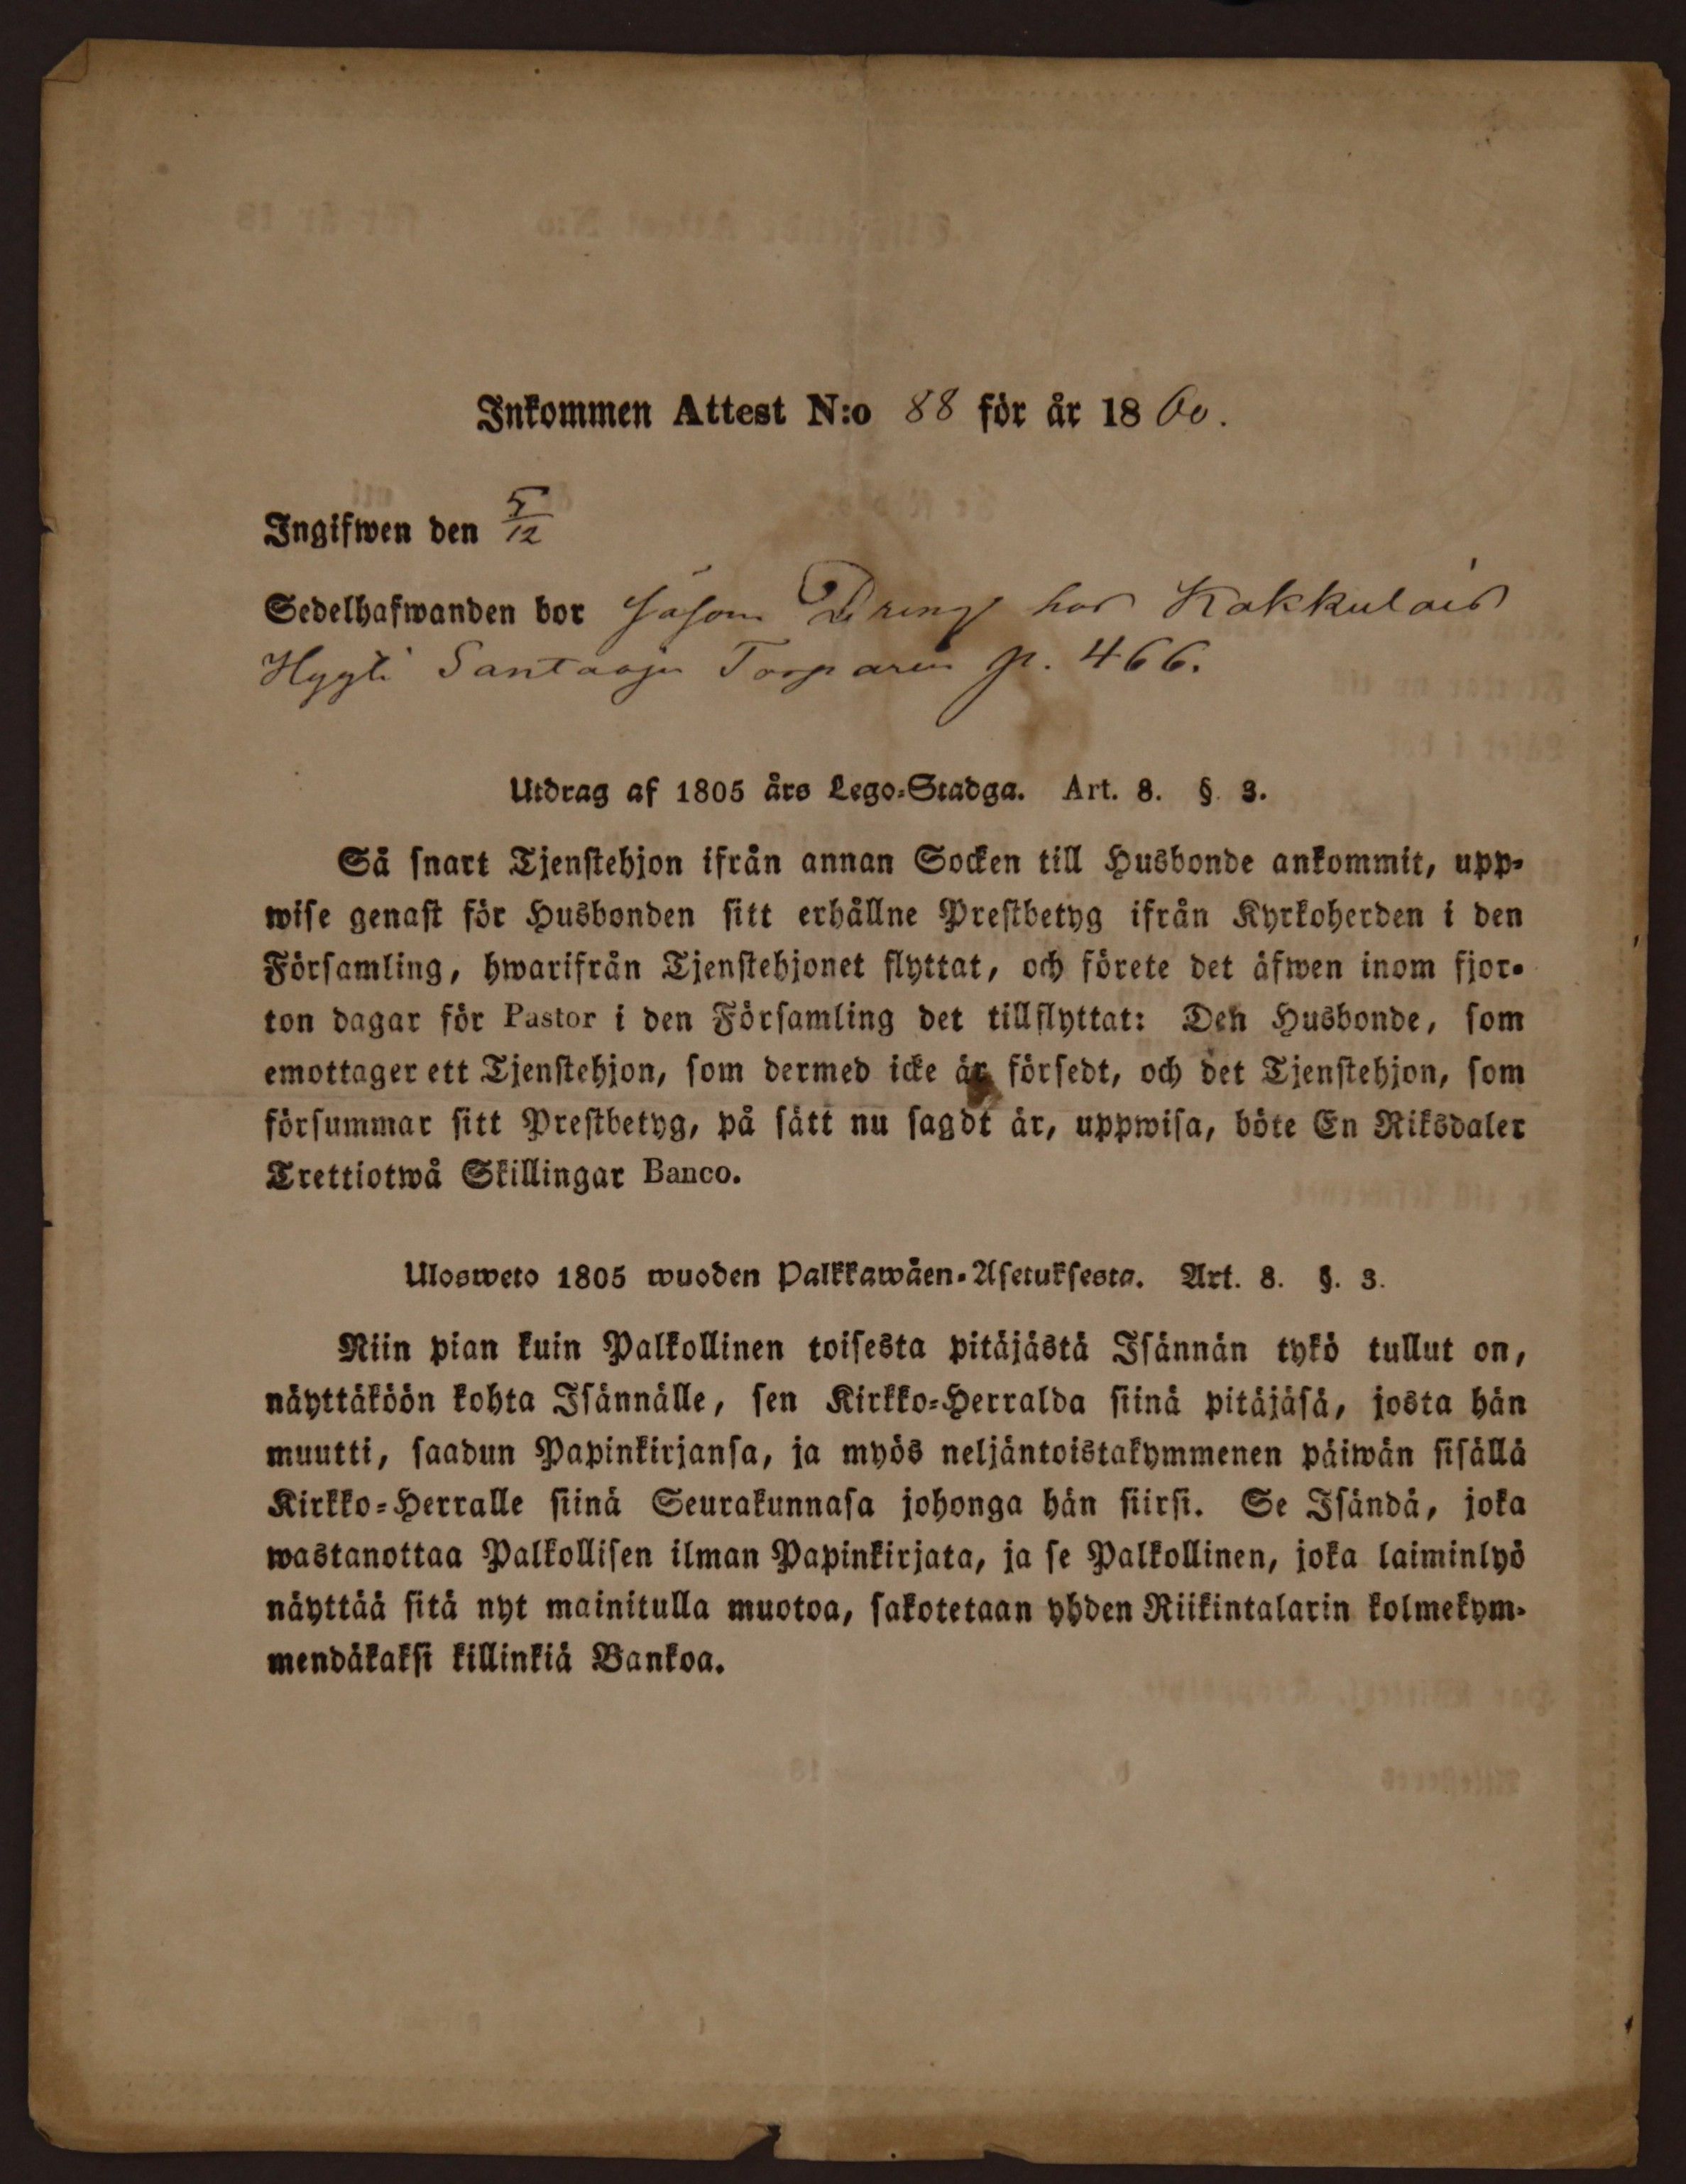 Inkommen Attest N:o 88 för år 1860.
Ingifwen den 5/12
Sedelhafwanden bor såsom Dreng hos Kakkulais
Hygti Santaoja Torparen p. 466.
Utdrag af 1805 års Lego-Stadga. Art. 8. §. 3.
Så snart Tjenstehjon ifrån annan Socken till Husbonde ankommit, upp-
wise genast för Husbonden sitt erhållne Prestbetyg ifrån Kyrkoherden i den
Församling, hwarifrån Tjenstehjonet flyttat, och förete det äfwen inom fjor-
ton dagar för Pastor i den Församling det tillflyttat: Den Husbonde, som
emottager ett Tjenstehjon, som dermed icke är försedt, och det Tjenstehjon, som
försummar sitt Prestbetyg, på sätt nu sagdt är, uppwisa, böte En Riksdaler
Trettiotwå Skillingar Banco.
Ulosweto 1805 wuoden Palkkawäen-Asetuksesta. Art. 8. §. 3.
Niin pian kuin Palkollinen toisesta pitäjästä Isännän tykö tullut on,
näyttäköön kohta Isännälle, sen Kirkko-Herralda siinä pitäjäsä, josta hän
muutti, saadun Papinkirjansa, ja myös neljäntoistakymmenen päiwän sisällä
Kirkko-Herralle siinä Seurakunnasa johonga hän siirsi. Se Isändä, joka
wastanottaa Palkollisen ilman Papinkirjata, ja se Palkollinen, joka laiminlyö
näyttää sitä nyt mainitulla muotoa, sakotetaan yhden Riikintalarin kolmekym-
mendäkaksi killinkiä Bankoa.